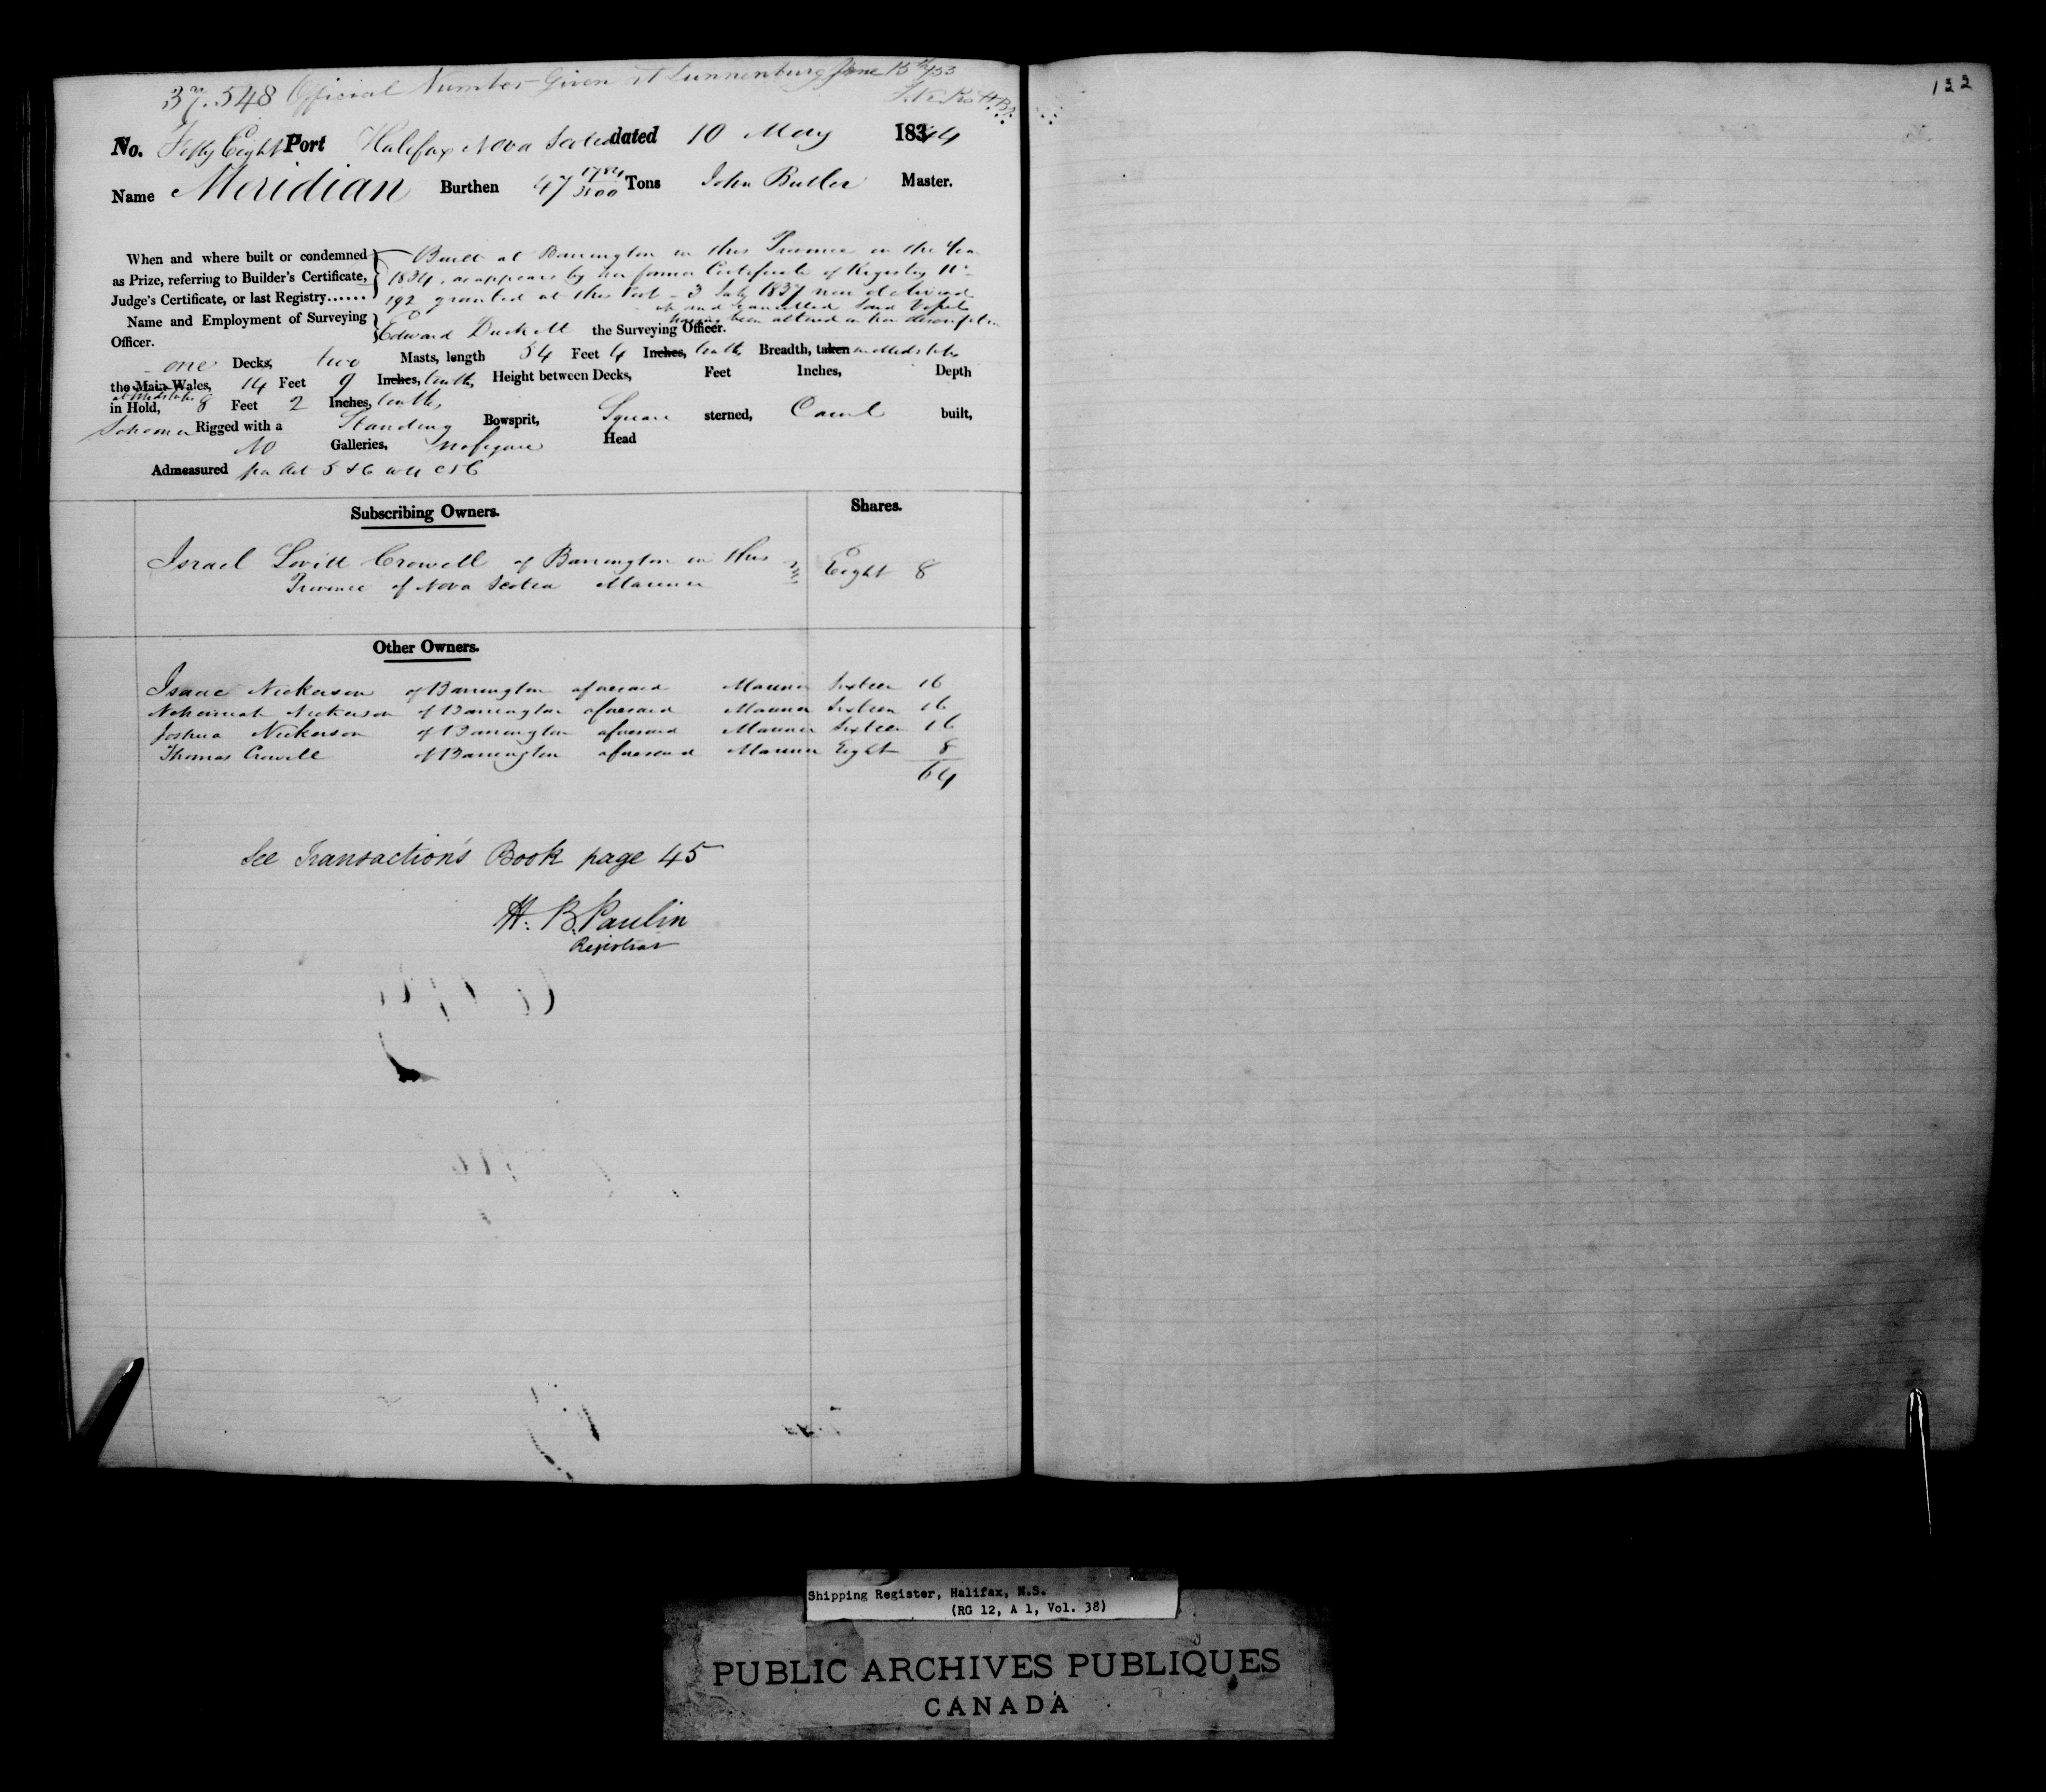 37.548 Official Number Given at Lunnenburg June 15th /53
132
No. Fifty Eight Port Halifax Nova Scotia dated 10 May 1844
Name Meridian Burthen 47 1784/3500 Tons John Butler Master.
When and where built or condemned
as Prize, referring to Builder's Certificate,
Judge's Certificate, or last Registry......
Built at Barrington in this Province in the Year
1834, as appears by her former Certificate of Registry No
192 granted at this Port - 3 July 1837 now delivered
up and cancelled Said Vessel
having been altered in her description
Name and Employment of Surveying
Officer.
Edward Duckett the Surveying Officer.
one Decks, two Masts, length 54 Feet 4 Inches, tenths Breadth, taken midships
the Main Wales, 14 Feet 9 Inches, tenths, Height between Decks, Feet Inches, Depth
at Midships
in Hold, 8 Feet 2 Inches, tenths,
Schooner Rigged with a Standing Bowsprit, Square sterned, Carvel built,
No Galleries, no figure Head
Admeasured per Act 5 & 6 Will C 56
Subscribing Owners. Shares.
Israel Lovitt Crowell of Barrington in this
Province of Nova Scotia Mariner Eight 8
Other Owners.
Isaac Nickerson of Barrington aforesaid Mariner Sixteen 16
Nehemiah Nickerson of Barrington aforesaid Mariner Sixteen 16
Joshua Nickerson of Barrington aforesaid Mariner Sixteen 16
Thomas Crowell of Barrington aforesaid Mariner Eight 8
64
See Transaction's Book page 45
H. B. Paulin
Registrar
Shipping Register, Halifax, N.S.
(RG 12, A 1, Vol. 38)
PUBLIC ARCHIVES PUBLIQUES
CANADA